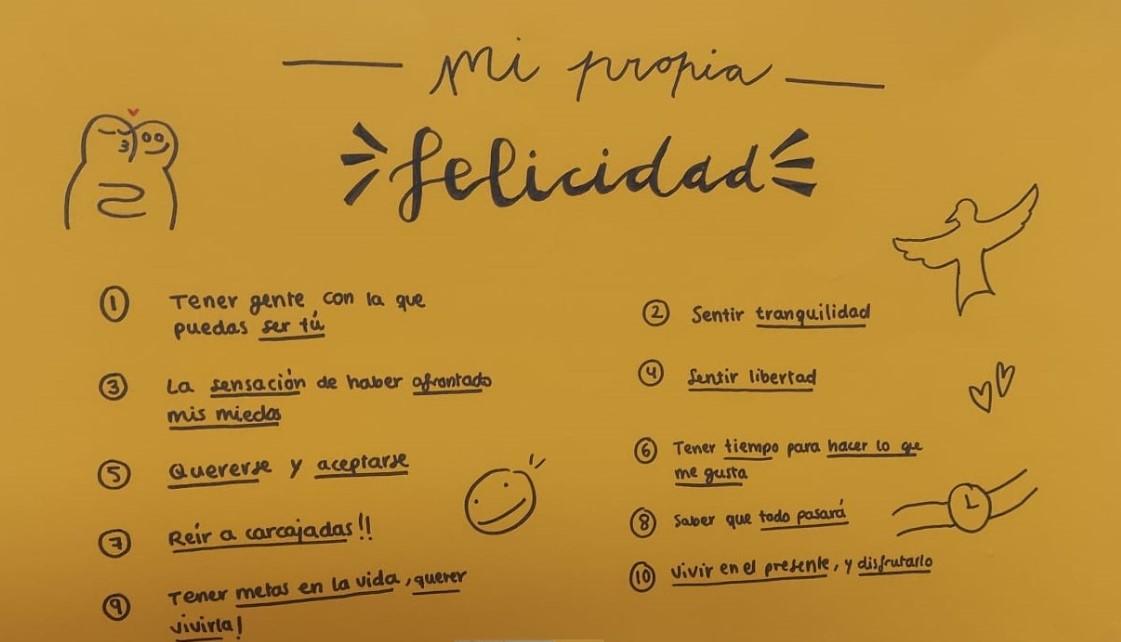 mi propia
felicidad
1 Tener gente con la que
puedas ser tú
2 Sentir tranquilidad
3 La sensación de haber afrontado
mis miedos
4 Sentir libertad
5 Quererse y aceptarse
6 Tener tiempo para hacer lo que
me gusta
7 Reír a carcajadas!!
8 Saber que todo pasará
9 Tener metas en la vida, querer
vivirla!
10 Vivir en el presente, y disfrutarlo